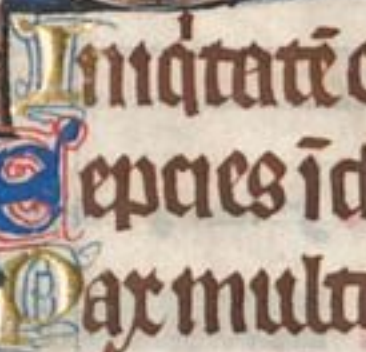 Iniqͥtatē o
Sepcies ī d
Pax multa